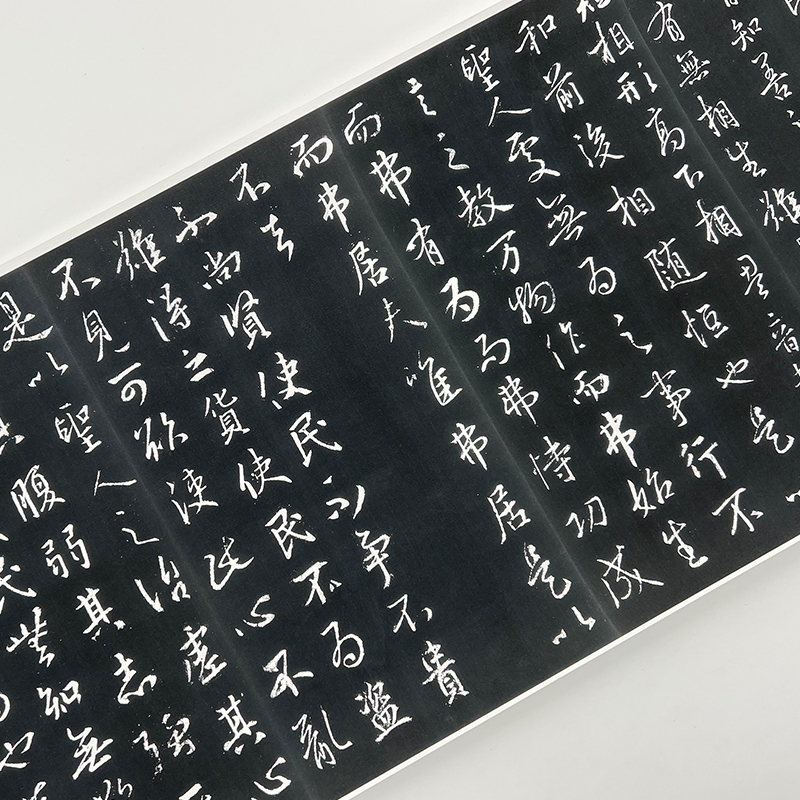 知善之
有無相生難
相形高下相盈音
和前後相隨恒也是以
聖人處無為之事行不
言之教万物作而弗始生
而弗有為而弗恃功成
而弗居夫唯弗居是以
不去
不尚賢使民不爭不貴
難得之貨使民不為盜
不見可欲使民心不亂
是以聖人之治虛其心
其腹弱其志強
民無知無欲
也